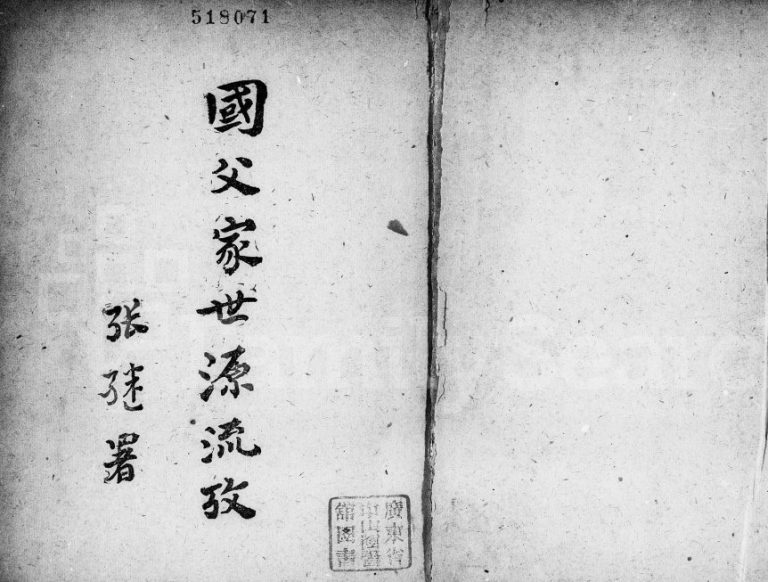 518071
國父家世源流攷
张继署
廣東省
中山圖書
館圖書